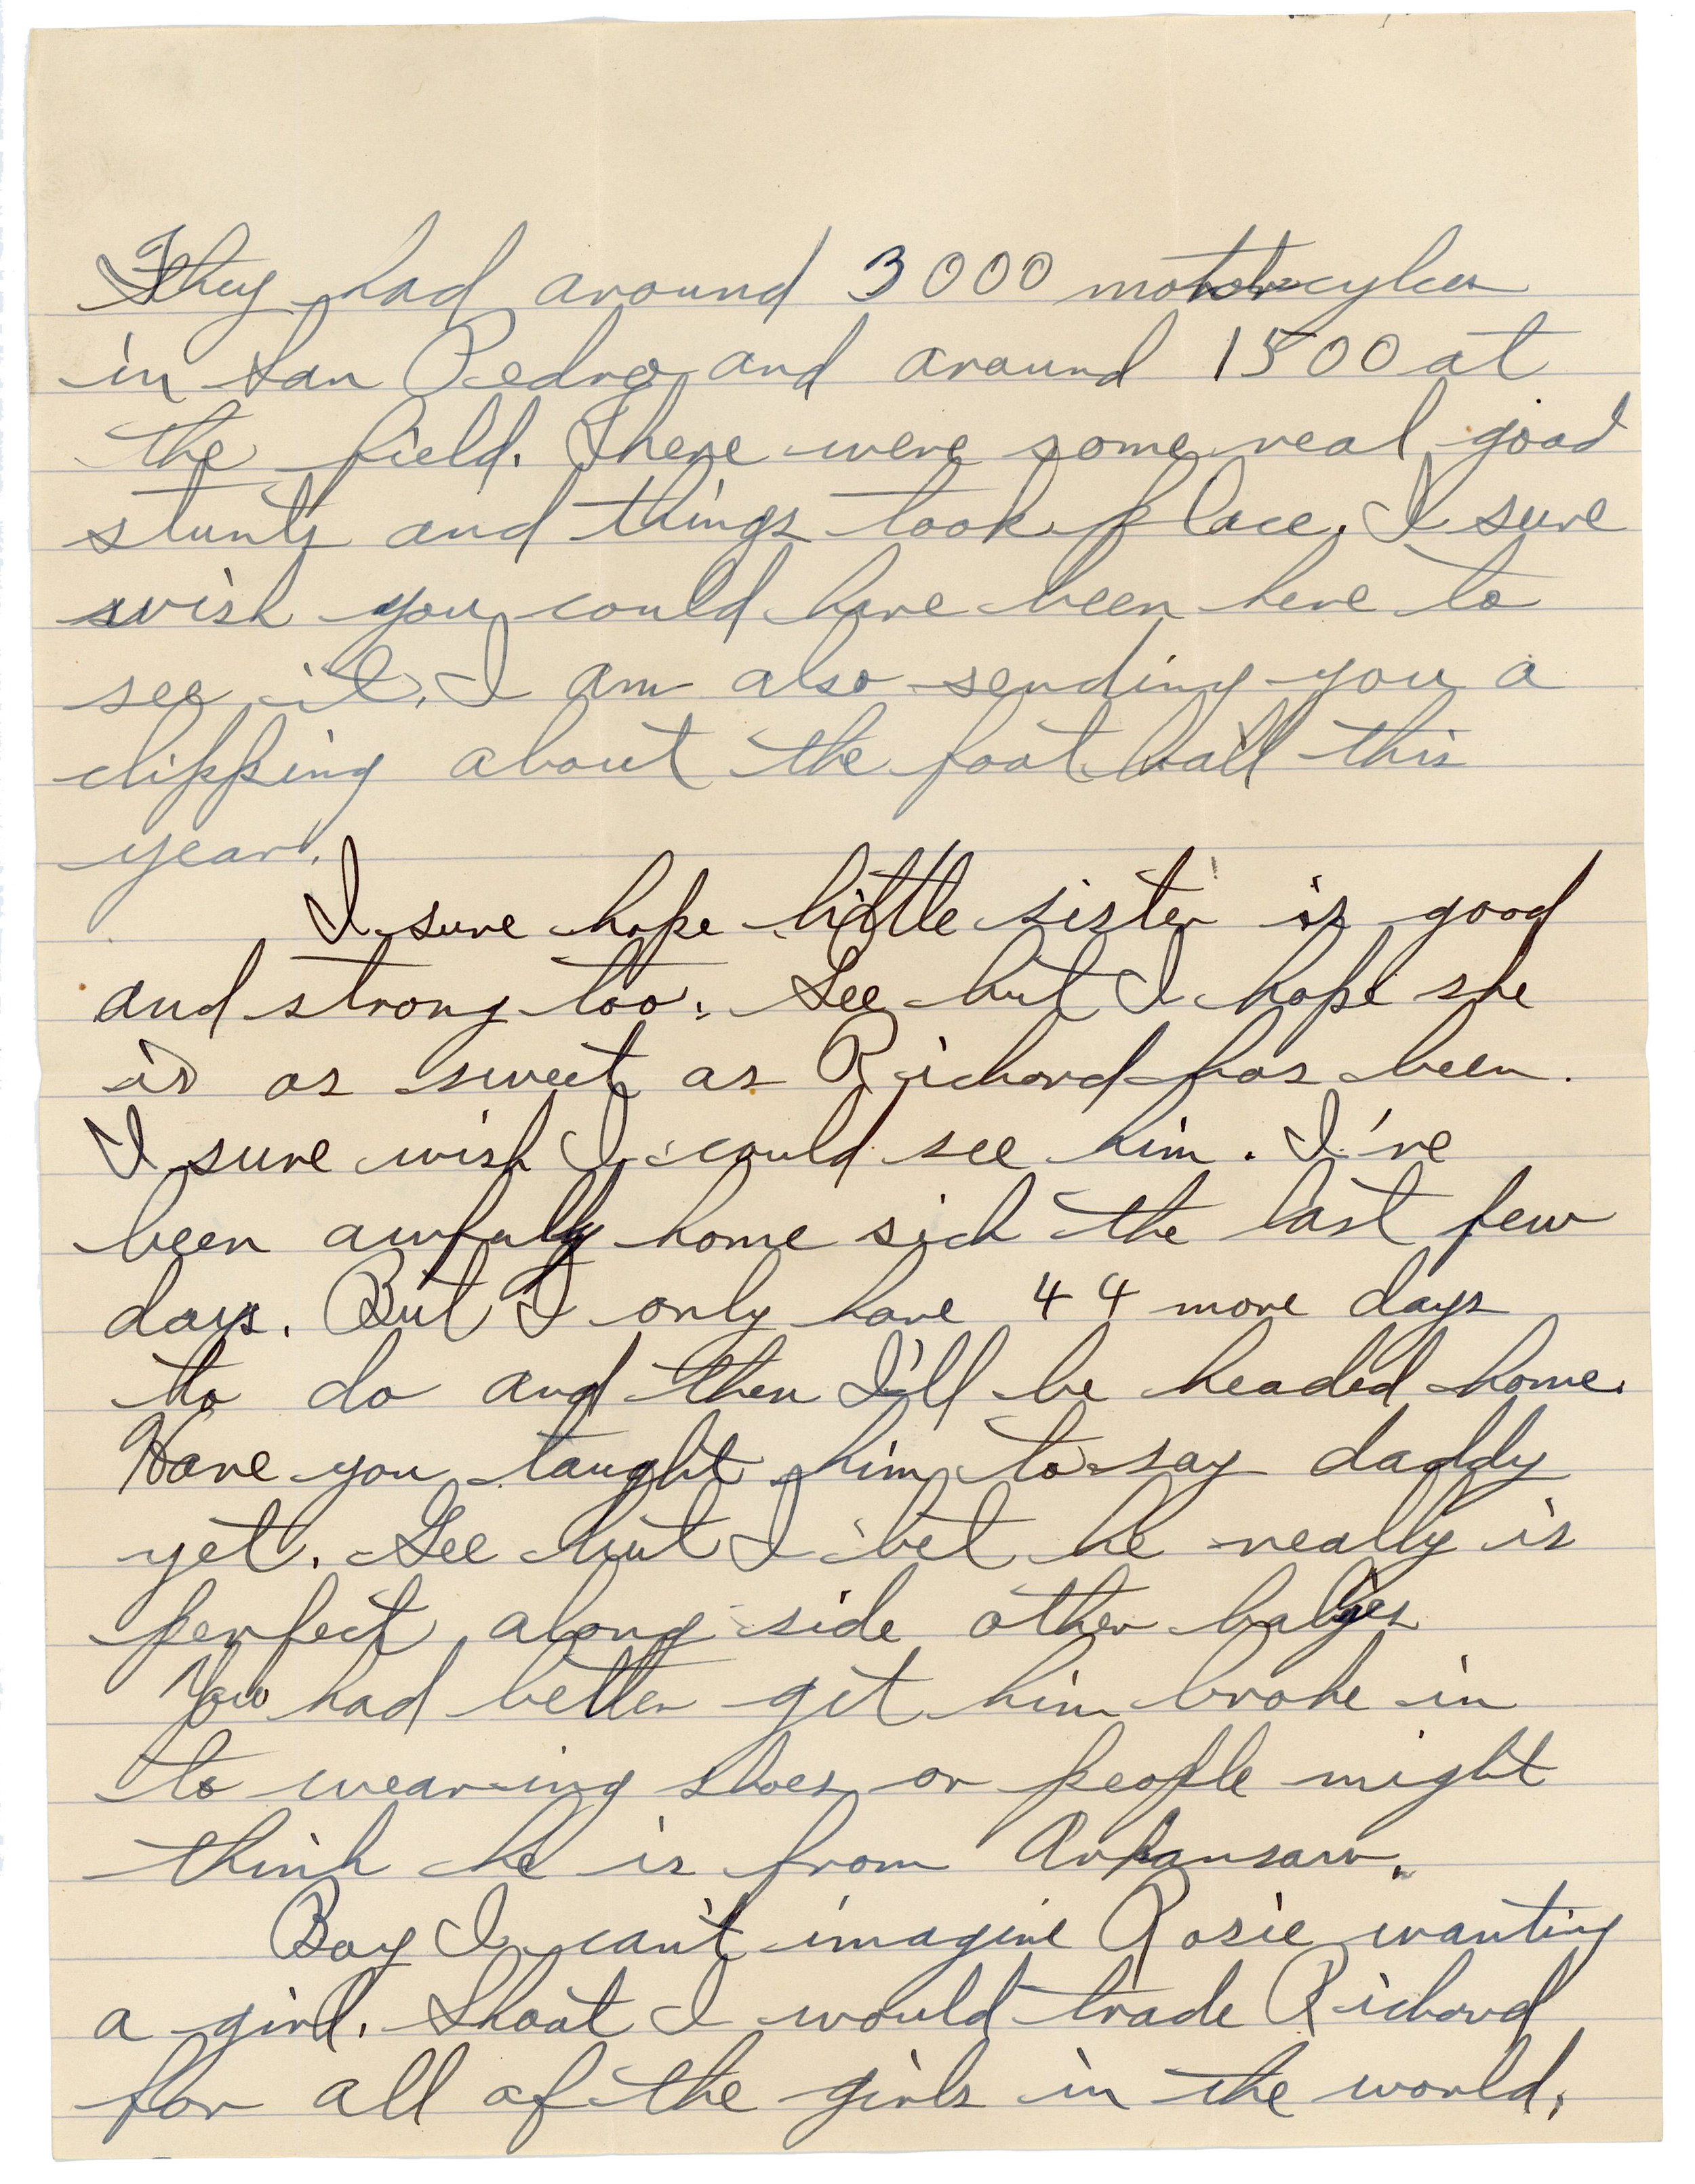 They had around 3000 motorcyles
in San Pedro and around 1500 at
the field. There were some real good
stunts and things took place. I sure
wish you could have been here to
see it. I am also sending you a
clipping about the foot ball this
year.
I sure hope little sister is good
and strong too. Gee but I hope she
is as sweet as Richard has been.
I sure wish I could see him. I've
been awfully home sick the last few
days. But I only have 44 more days
to do and then I'll be headed home.
Have you taught him to say daddy
yet. Gee but I bet he really is
perfect along side other babies
You had better get him broke in
to wearing shoes or people might
think he is from Arkansaw.
Boy I can't imagine Rosie wanting
a girl. Shoot I would trade Richard
for all of the girls in the world.